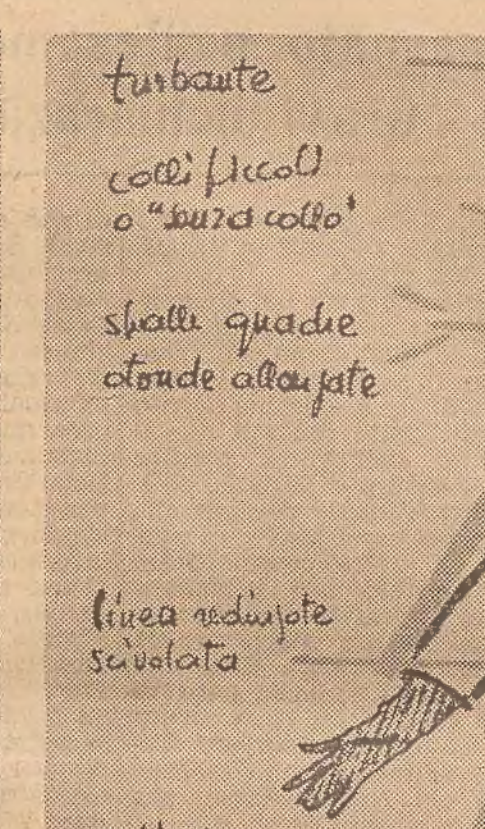 turbante
colli piccoli
o "senza collo"
spalle quadre
o tonde allargate
linea redingote
scivolata